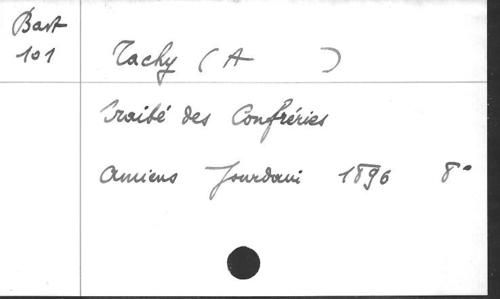 Bart
101
Tachy (A )
Traité des Confréries
Amiens Jourdani 1896 8°